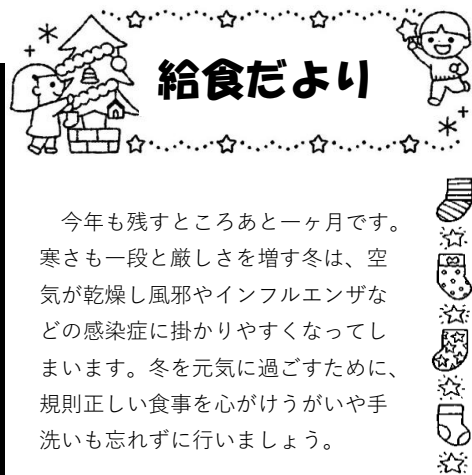 給食だより
　今年も残すところあと一ヶ月です。
寒さも一段と厳しさを増す冬は、空
気が乾燥し風邪やインフルエンザな
どの感染症に掛かりやすくなってし
まいます。冬を元気に過ごすために、
規則正しい食事を心がけうがいや手
洗いも忘れずに行いましょう。